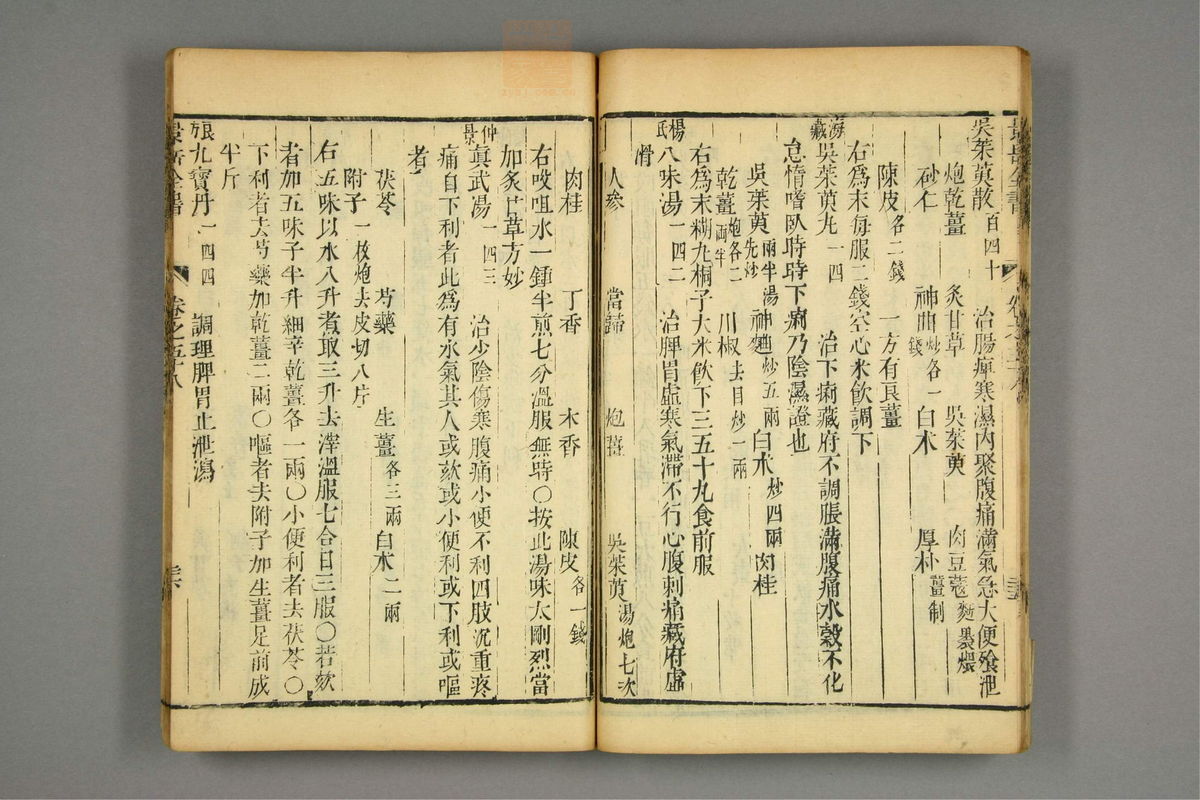 吳茱萸散百四十　治腸痺寒濕內聚腹痛滿氣急大便飧泄
炮乾薑　炙甘草　吳茱萸　肉豆蔻麪裹煨
砂仁　神曲炒各一錢　白朮　厚朴薑制
陳皮各二錢　一方有良薑
右為末每服二錢空心米飲調下
海藏吳茱萸丸一四一　治下痢藏府不調脹滿腹痛水穀不化
怠惰嗜臥時時下痢乃陰濕證也
吳茱萸兩半湯先炒　神麯炒五兩　白朮炒四兩　肉桂
乾薑炮各二兩半　川椒去目炒一兩
右為末糊丸桐子大米飲下三五十丸食前服
楊氏八味湯一四二　治脾胃虛寒氣滯不行心腹刺痛藏府虛
滑
人參　當歸　炮薑　吳茱萸湯炮七次
肉桂　丁香　木香　陳皮各一錢
右㕮咀水一鍾半煎七分溫服無時〇按此湯味太剛烈當
加炙甘草方妙
仲景真武湯一四三　治少陰傷寒腹痛小便不利四肢沉重疼
痛自下利者此為有水氣其人或欬或小便利或下利或嘔
者
茯苓　芍藥　生薑各三兩　白朮二兩
附子一枚炮去皮切八片
右五味以水八升煮取三升去滓溫服七合日三服〇若欬
者加五味子半升細辛乾薑各一兩〇小便利者去茯苓〇
下利者去芍藥加乾薑二兩〇嘔者去附子加生薑足前成
半斤
九寶丹一四四　調理脾胃止泄瀉
景岳全書　卷之五十八